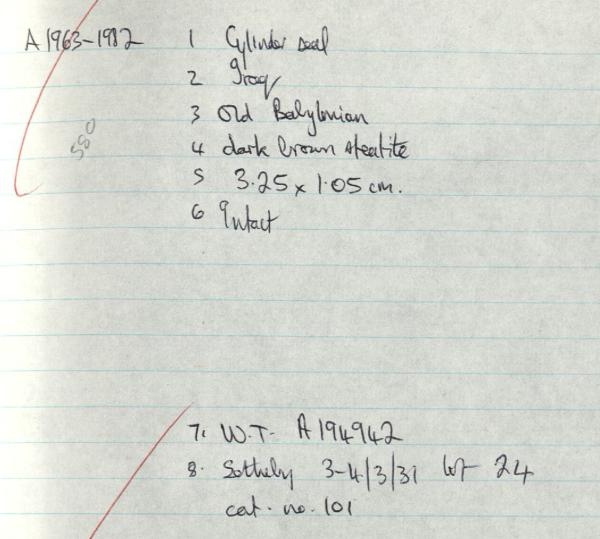 A1963-1982 1 Cylinder seal
2 Iraq
3 Old Babylonian
580
4 dark brown steatite
5 3.25 x 1.05 cm.
6 Intact
7. W.T. A194942
8. Sotheby 3-4/3/31 lot 24
cat. no. 101